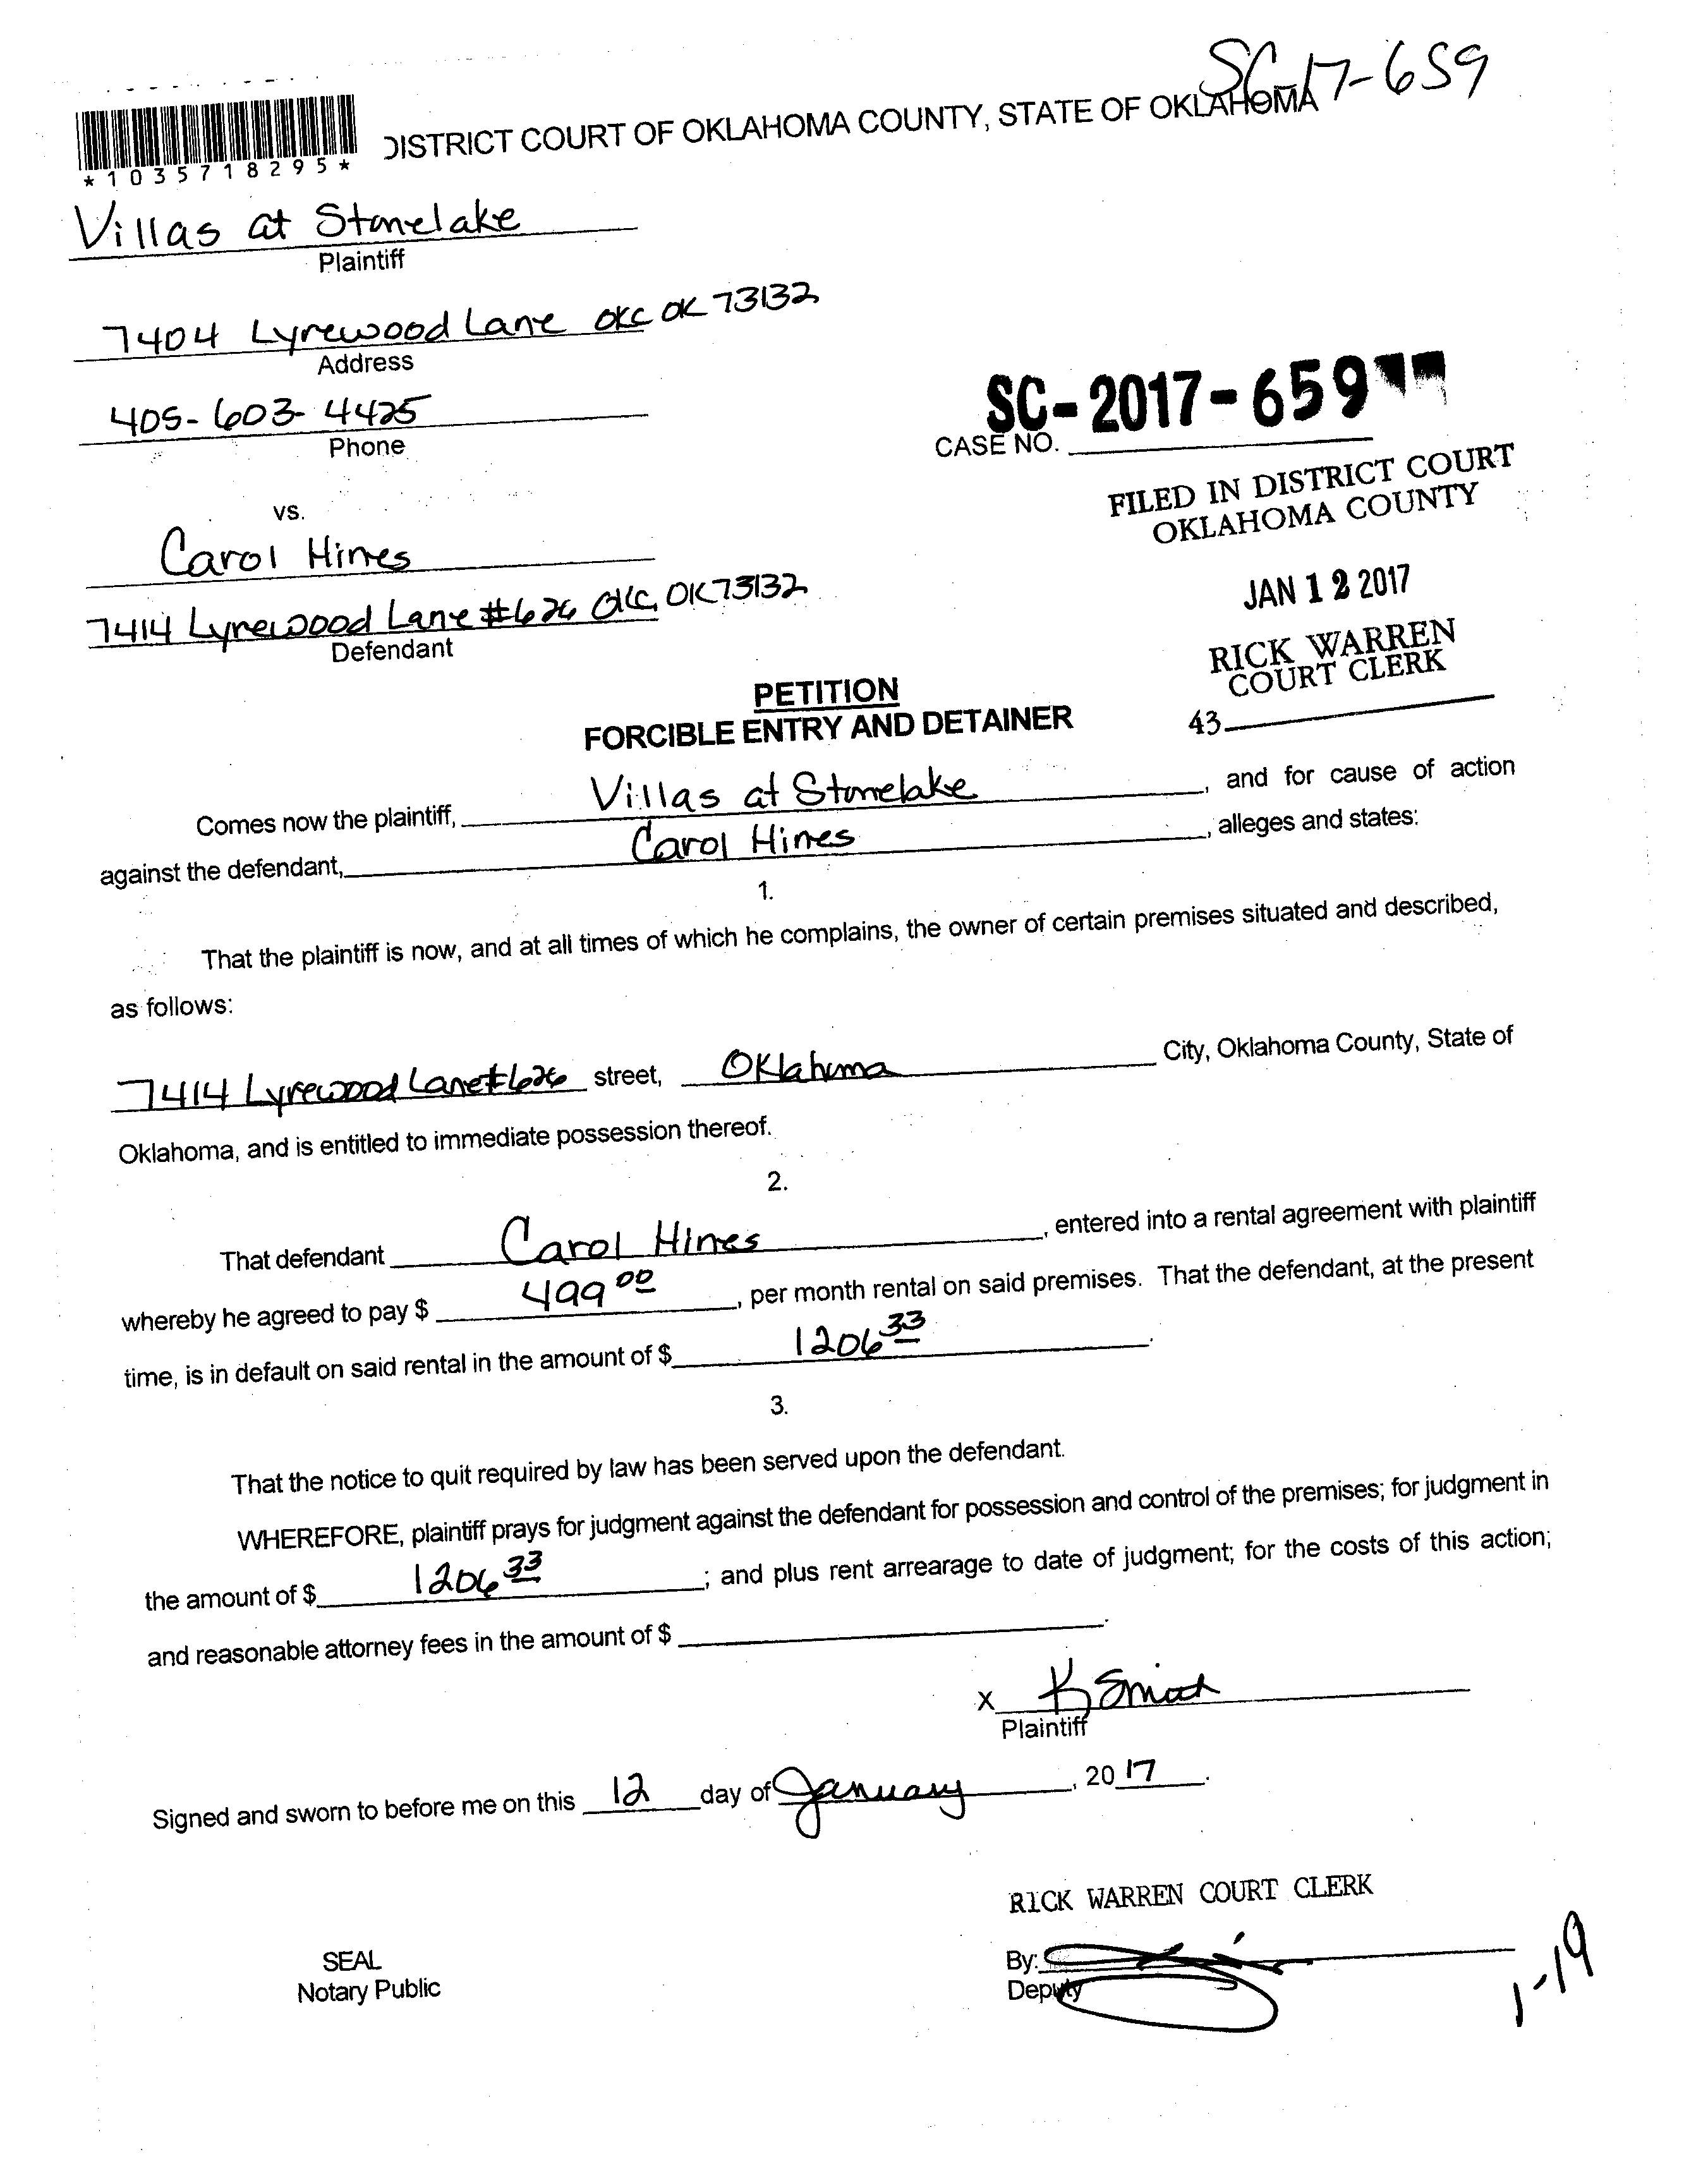 SC-17-659
DISTRICT COURT OF OKLAHOMA COUNTY, STATE OF OKLAHOMA
*1035718295*
Villas at Stonelake
Plaintiff
7404 Lyrewood Lane OKC OK 73132
Address
405-603-4425
Phone
SC-2017-659
CASE NO.
FILED IN DISTRICT COURT
OKLAHOMA COUNTY
vs.
Carol Hines
JAN 12 2017
7414 Lyrewood Lane #626 OKC, OK 73132
Defendant
RICK WARREN
COURT CLERK
43
PETITION
FORCIBLE ENTRY AND DETAINER
Comes now the plaintiff, Villas at Stonelake, and for cause of action
against the defendant, Carol Hines, alleges and states:
1.
That the plaintiff is now, and at all times of which he complains, the owner of certain premises situated and described,
as follows:
7414 Lyrewood Lane #626 street, Oklahoma City, Oklahoma County, State of
Oklahoma, and is entitled to immediate possession thereof.
2.
That defendant Carol Hines, entered into a rental agreement with plaintiff
whereby he agreed to pay $ 499 00, per month rental on said premises. That the defendant, at the present
time, is in default on said rental in the amount of $ 1206 33.
3.
That the notice to quit required by law has been served upon the defendant.
WHEREFORE, plaintiff prays for judgment against the defendant for possession and control of the premises; for judgment in
the amount of $ 1206 33; and plus rent arrearage to date of judgment; for the costs of this action;
and reasonable attorney fees in the amount of $ .
X K Smith
Plaintiff
Signed and sworn to before me on this 12 day of January, 20 17.
RICK WARREN COURT CLERK
SEAL
Notary Public
By:
Deputy
1-19